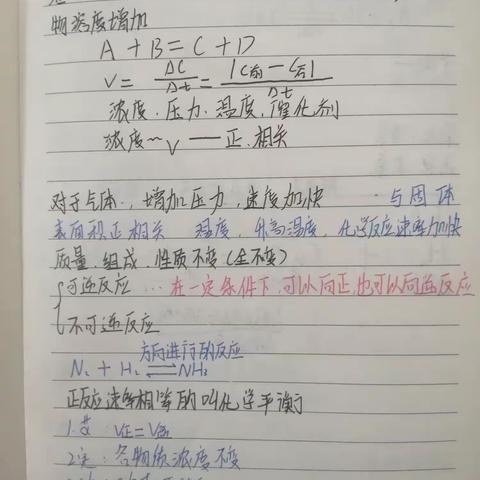 物浓度增加
A + B = C + D
V = ΔC/Δt = |C前 - C后|/Δt
浓度.压力.温度,催化剂
浓度~V — 正.相关
对于气体.,增加压力,速度加快 与固体
表面积正相关 温度,升高温度,化学反应速率加快
质量.组成.性质不变(全不变)
可逆反应…在一定条件下,可以向正,也可以向逆反应
不可逆反应
方向进行的反应
N₂ + H₂ ⇌ NH₃
正反应速率相等的叫化学平衡
1. V正=V逆
2定:各物质浓度不变